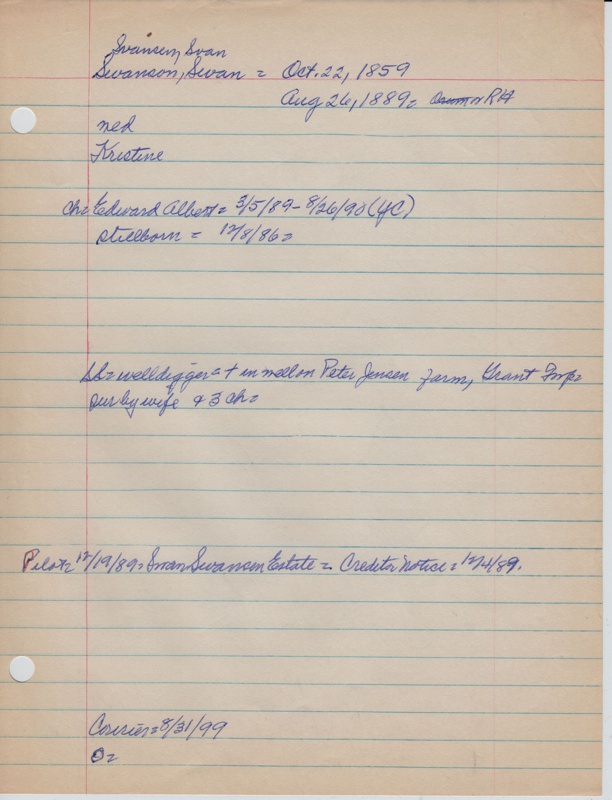 Svansen, Svan
Swanson, Swan = Oct. 22, 1859
Aug 26, 1889= RH
ned
Kristine
ch= Edward Albert= 3/5/89-8/26/90 (YC)
stillborn = 12/8/86=
LL= welldigger= + in well on Peter Jensen farm, Grant Twp=
sur by wife & 3 ch=
Pilot= 12/19/89= Swan Swanson Estate = Creditor Notice = 12/4/89.
Courier= 8/31/99
O=